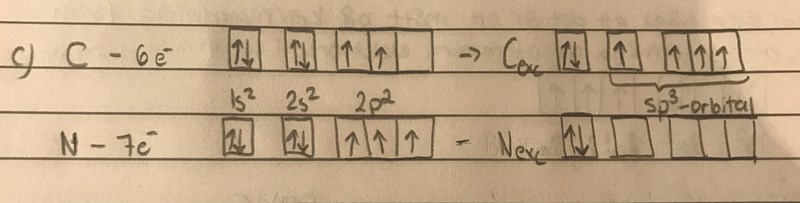 c) C - 6e⁻ ↑↓ ↑↓ ↑ ↑ → Cexc ↑↓ ↑ ↑ ↑ ↑
1s² 2s² 2p² sp³-orbital
N - 7e⁻ ↑↓ ↑↓ ↑ ↑ ↑ - Nexc ↑↓